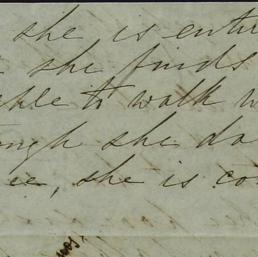 she is enti
she finds
able to walk w
ough she do
ee, she is co